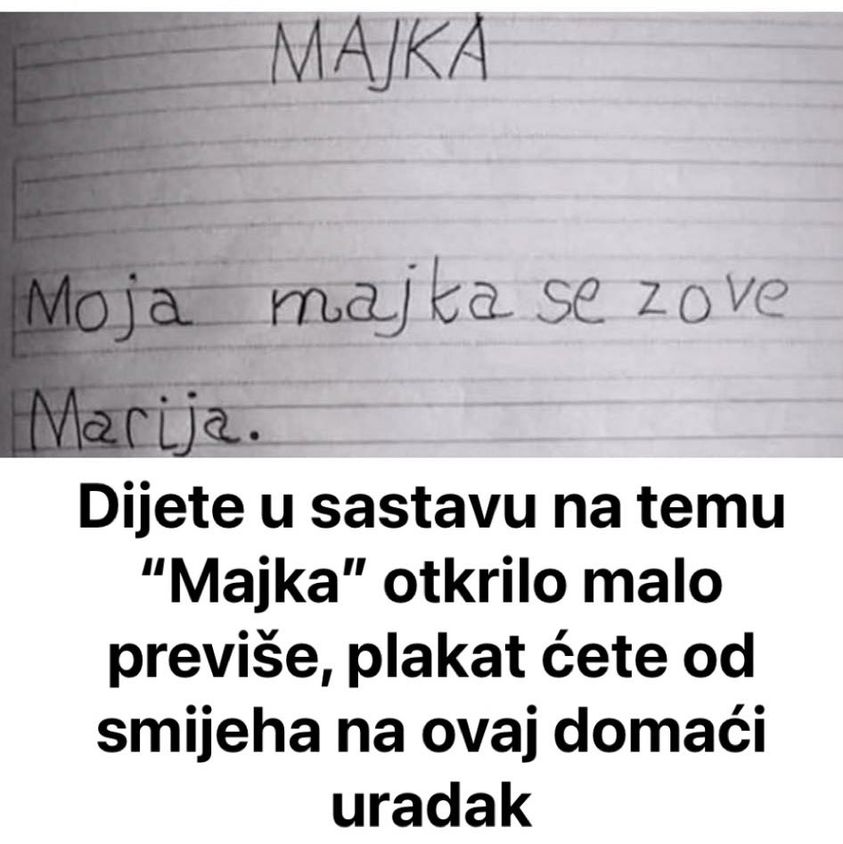 MAJKA
Moja majka se zove
Marija.
Dijete u sastavu na temu
“Majka” otkrilo malo
previše, plakat ćete od
smijeha na ovaj domaći
uradak